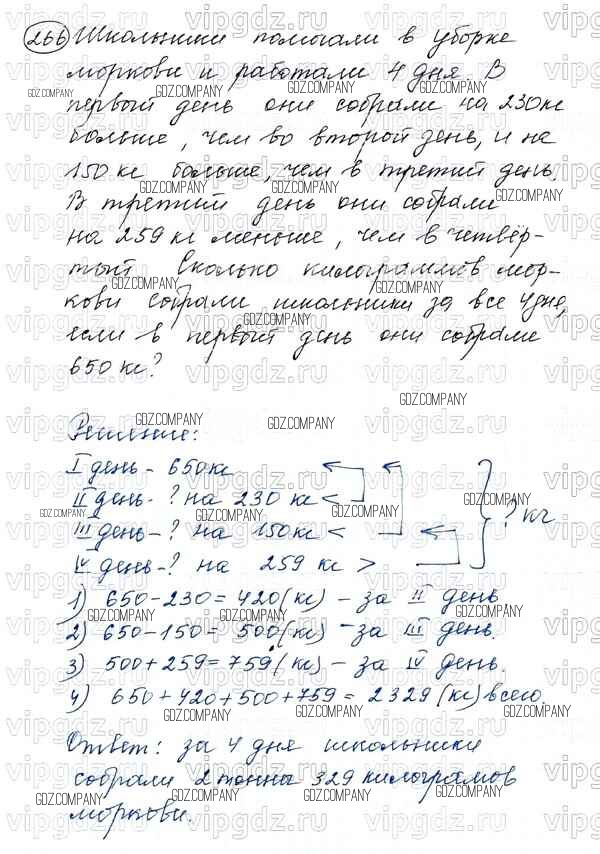 266 Школьники помогали в уборке
моркови и работали 4 дня. В
первый день они собрали на 230кг
больше, чем во второй день, и на
150 кг больше, чем в третий день.
В третий день они собрали
на 259 кг меньше, чем в четвёр-
тый. Сколько килограммов мор-
кови собрали школьники за все 4 дня,
если в первый день они собрали
650 кг?
Решение:
I день - 650 кг
II день - ? на 230 кг <
III день - ? на 150 кг <
IV день - ? на 259 кг >
? кг
1) 650-230=420(кг) - за II день
2) 650-150= 500(кг) - за III день.
3) 500+259=759(кг) - за IV день.
4) 650+420+500+759= 2329(кг) всего.
Ответ: за 4 дня школьники
собрали 2 тонна 329 килограмов
моркови.
vipgdz.ru
GDZ.COMPANY